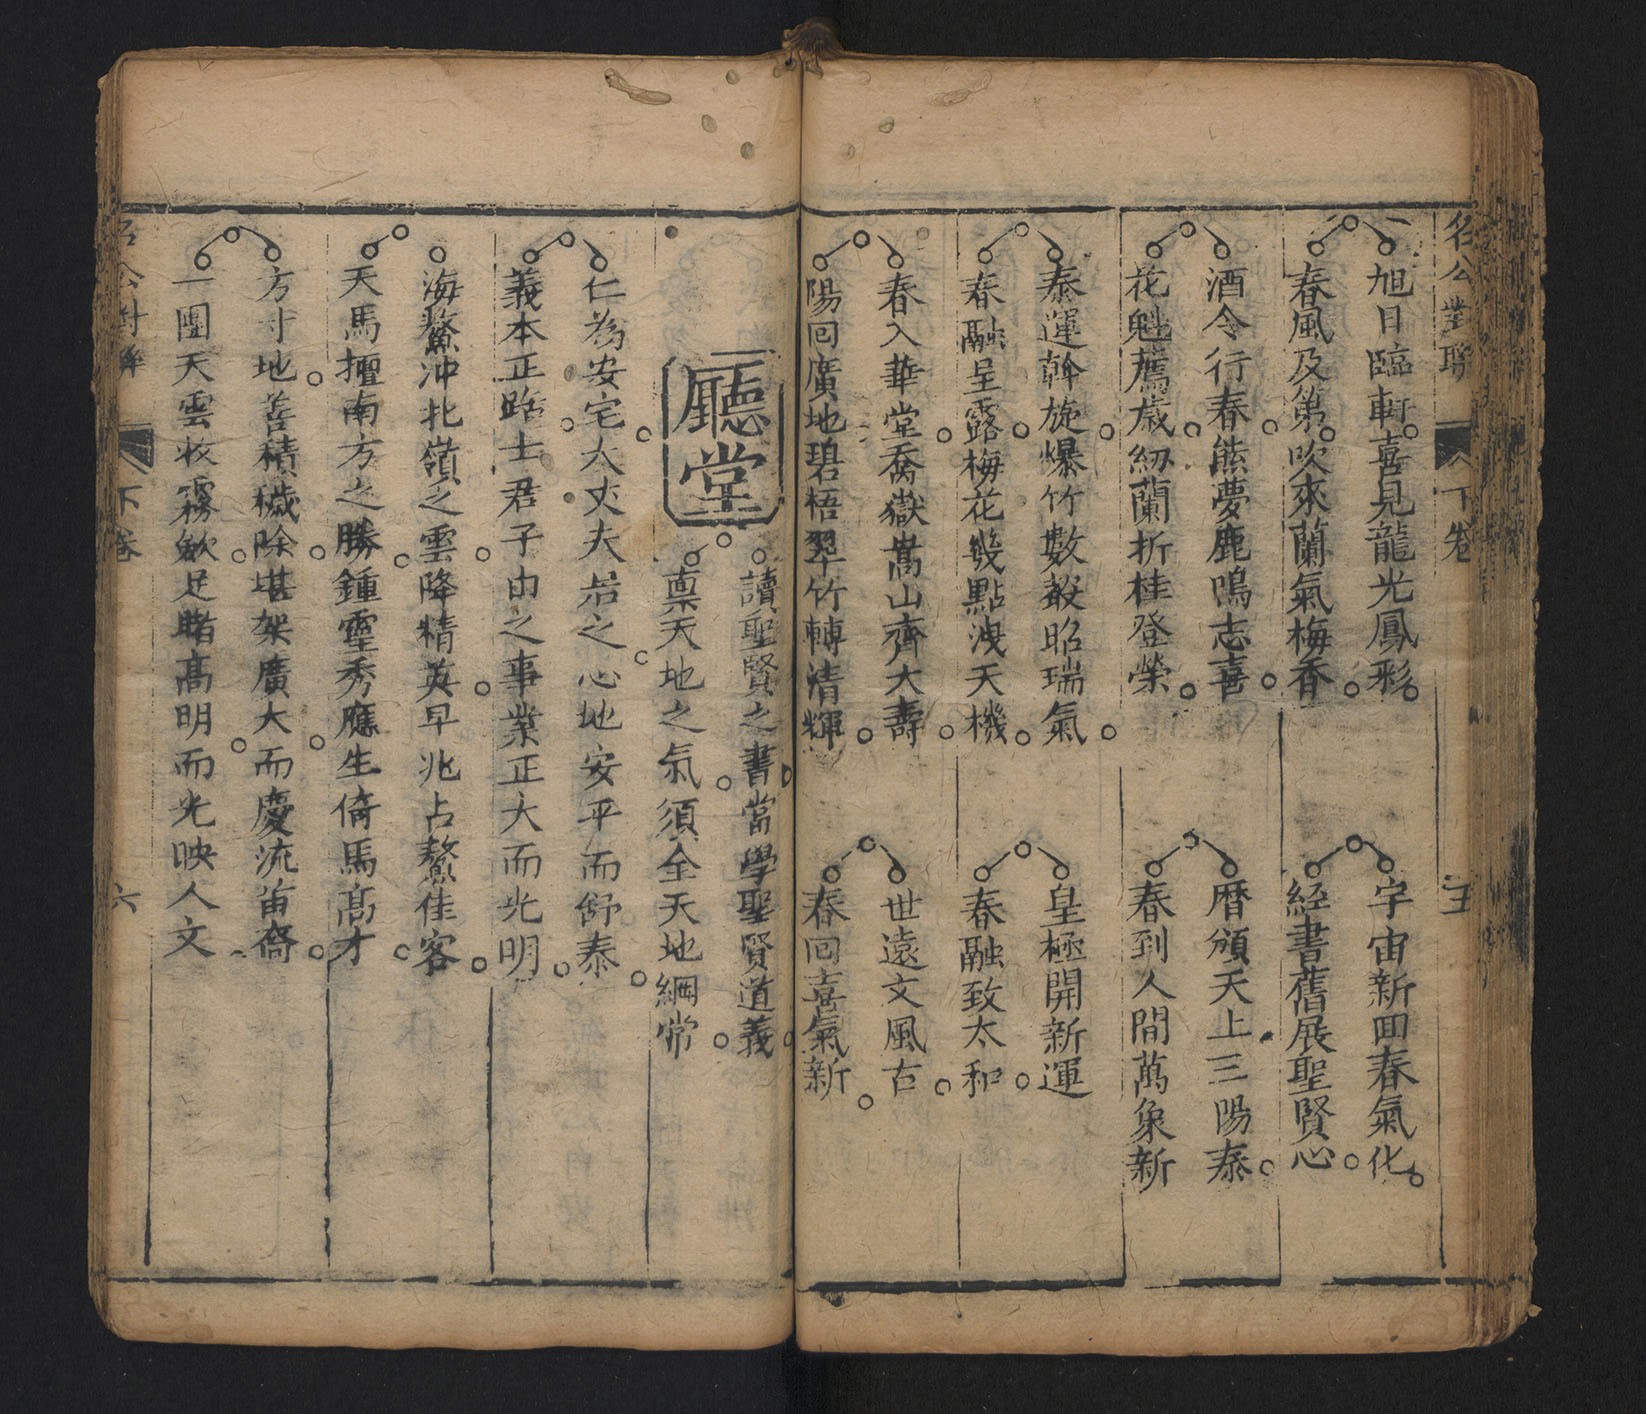 名公對聯 下卷 五
旭日臨軒喜見龍光鳳彩
春風及第吹來蘭氣梅香
宇宙新回春氣化
經書舊展聖賢心
酒令行春熊夢鹿鳴志喜
花魁薦歲紉蘭折桂登榮
曆頒天上三陽泰
春到人間萬象新
泰運斡旋爆竹數聲昭瑞氣
春融呈露梅花幾點洩天機
皇極開新運
春融致太和
春入華堂喬嶽嵩山齊大壽
陽回廣地碧梧翠竹轉清輝
世遠文風古
春回喜氣新
廳堂
讀聖賢之書當學聖賢道義
禀天地之氣須全天地綱常
仁為安宅大丈夫居之心地安平而舒泰
義本正路士君子由之事業正大而光明
海鰲冲北嶺之雲降精英早兆占鰲佳客
天馬擅南方之勝鍾靈秀應生倚馬高才
方寸地善積穢除堪架廣大而慶流苗裔
一團天雲收霧斂足睹高明而光映人文
名公對聯 下卷 六